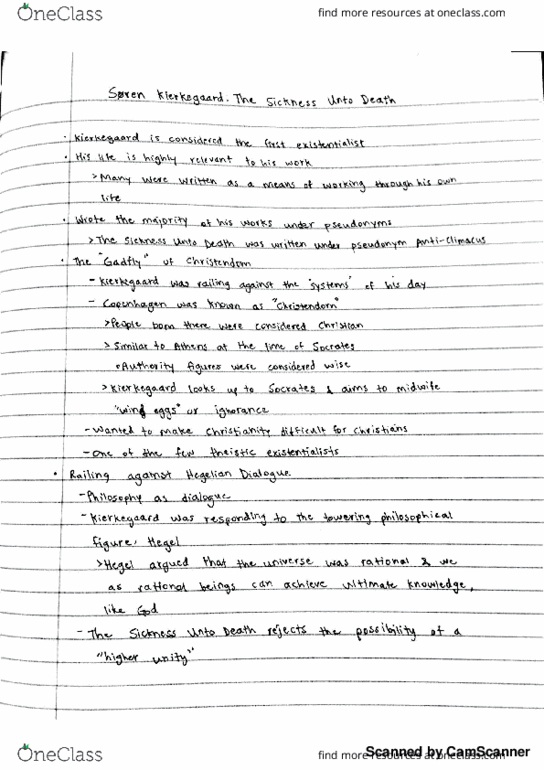 OneClass
find more resources at oneclass.com
Søren Kierkegaard. The Sickness Unto Death
· Kierkegaard is considered the first existentialist
· His life is highly relevant to his work
> Many were written as a means of working through his own
life
· Wrote the majority of his works under pseudonyms
> The Sickness Unto Death was written under pseudonym Anti-Climacus
· The "Gadfly" of Christendom
- Kierkegaard was railing against the "systems" of his day
- Copenhagen was known as "Christendom"
> People born there were considered Christian
> Similar to Athens at the time of Socrates
• Authority figures were considered wise
> Kierkegaard looks up to Socrates & aims to midwife
"wind eggs" or ignorance
- Wanted to make Christianity difficult for Christians
- One of the few theistic existentialists
· Railing against Hegelian Dialogue.
- Philosophy as dialogue
- Kierkegaard was responding to the towering philosophical
figure, Hegel
> Hegel argued that the universe was rational & we
as rational beings can achieve ultimate knowledge,
like God
- The Sickness Unto Death rejects the possibility of a
"higher unity"
OneClass
find more resources at oneclass.com
Scanned by CamScanner